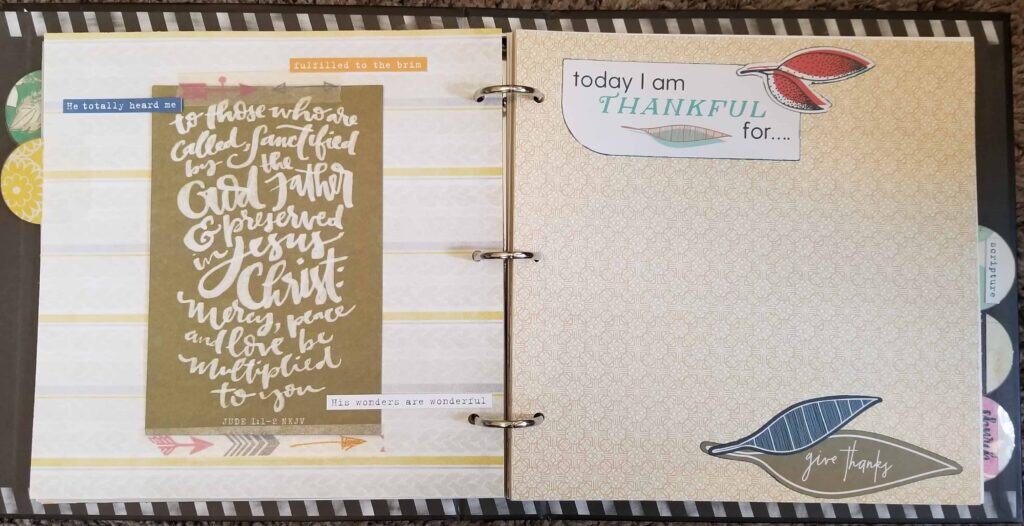 fulfilled to the brim
He totally heard me
to those who are
called, sanctified
by the
God Father
& preserved
in Jesus
Christ:
Mercy, peace
and love be
multiplied
to you
JUDE 1:1-2 NKJV
His wonders are wonderful
today I am
THANKFUL
for....
give thanks
scripture
church